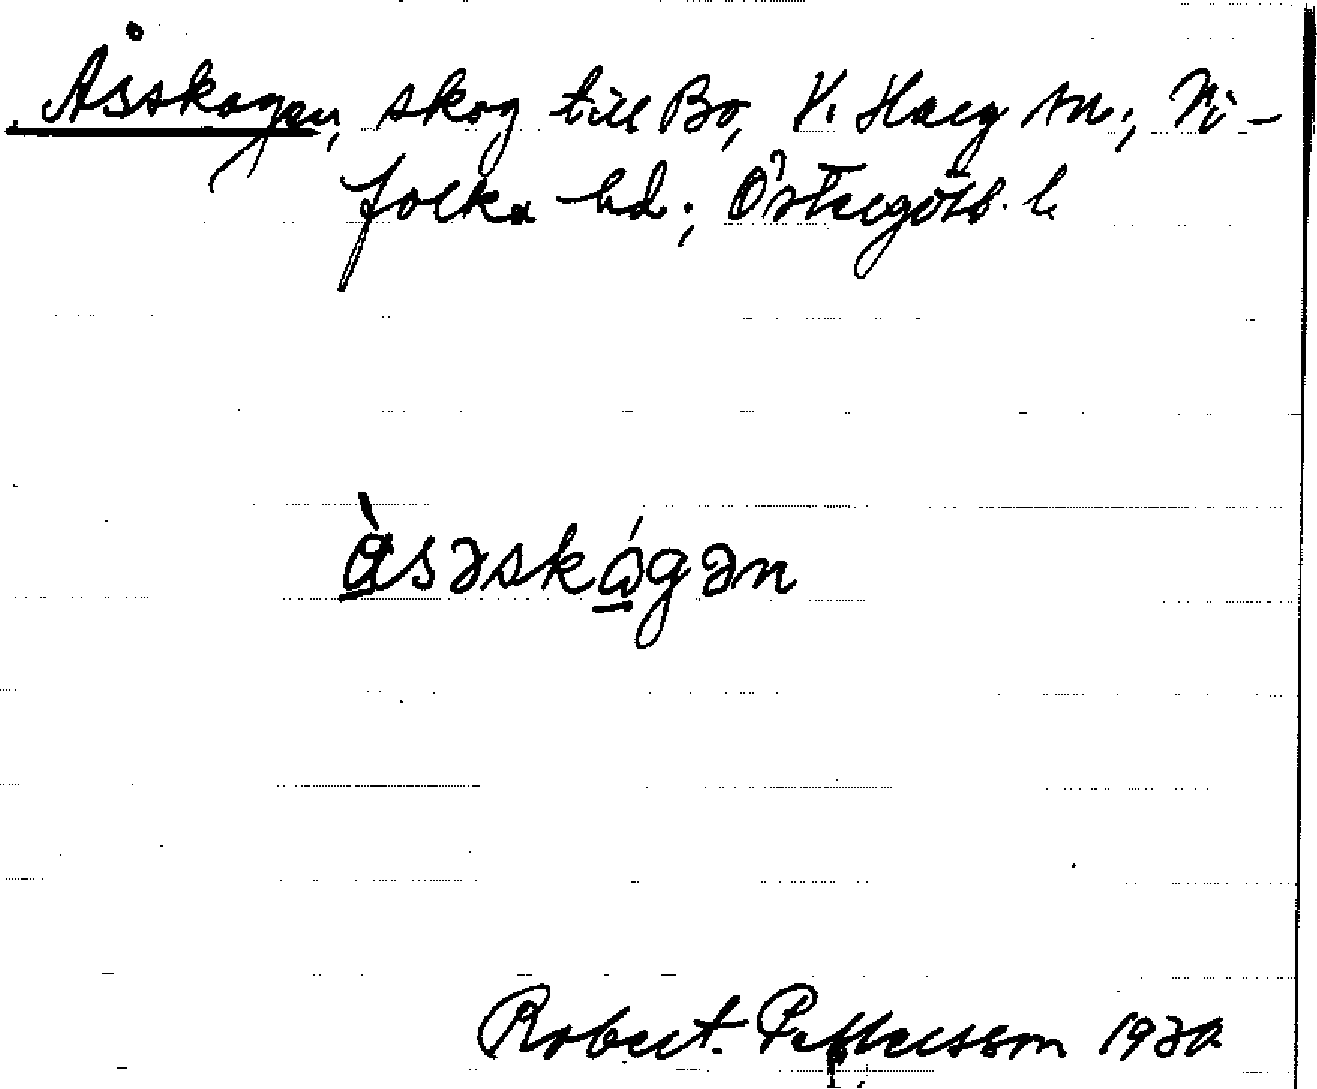 Åsskogen, skog till Bo, V. Harg sn.; Vi-
folka hd.; Östergötl. l.
àsəskágən
Robert Pettersson 1930